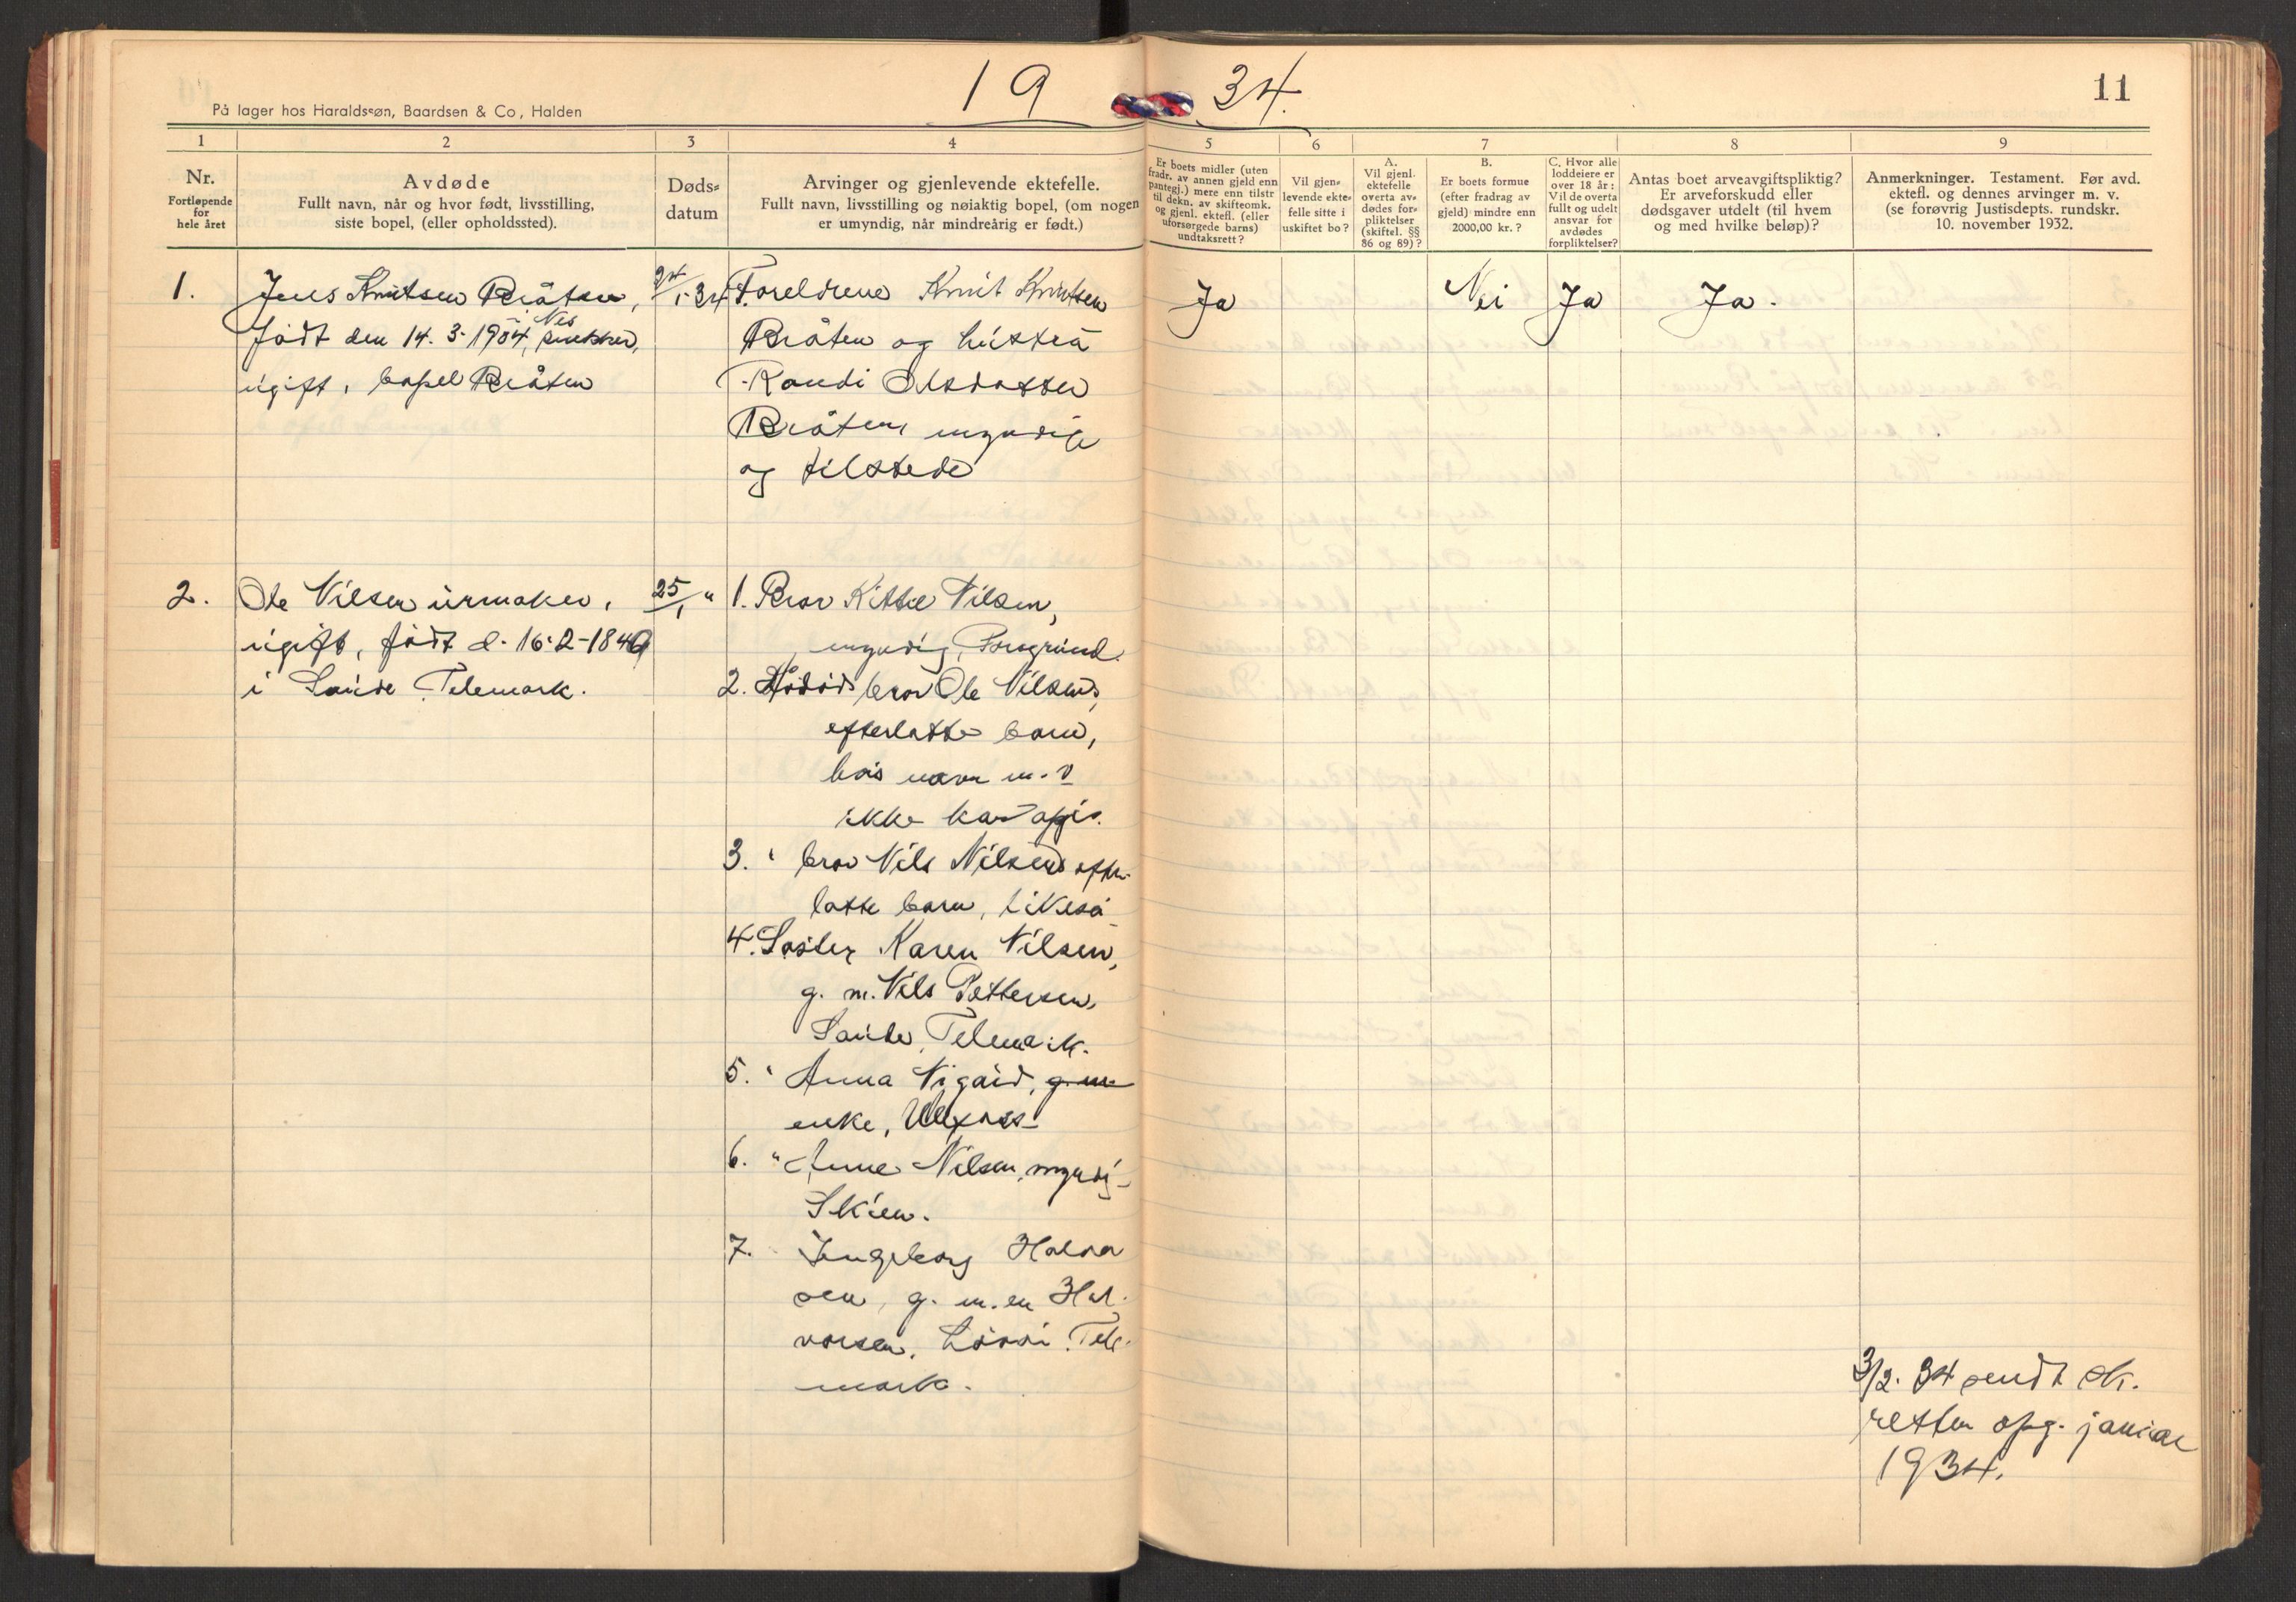 19 34.
11
På lager hos Haraldssøn, Baardsen & Co, Halden
1 2 3 4 5 6 7 8 9
Nr.
Fortløpende
for
hele året
Avdøde
Fullt navn, når og hvor født, livsstilling,
siste bopel, (eller opholdssted).
Døds-
datum
Arvinger og gjenlevende ektefelle.
Fullt navn, livsstilling og nøiaktig bopel, (om nogen
er umyndig, når mindreårig er født.)
Er boets midler (uten
fradr. av annen gjeld enn
pantegj.) mere enn tilstr
til dekn. av skifteomk.
og gjenl. ektefl. (eller
uforsørgede barns)
undtaksrett?
Vil gjen-
levende ekte-
felle sitte i
uskiftet bo?
A.
Vil gjenl.
ektefelle
overta av-
dødes for-
pliktelser
(skiftel. §§
86 og 89)?
B.
Er boets formue
(efter fradrag av
gjeld) mindre enn
2000,00 kr.?
C. Hvor alle
loddeiere er
over 18 år:
Vil de overta
fullt og udelt
ansvar for
avdødes
forpliktelser?
Antas boet arveavgiftspliktig?
Er arveforskudd eller
dødsgaver utdelt (til hvem
og med hvilke beløp)?
Anmerkninger. Testament. Før avd.
ektefl. og dennes arvinger m. v.
(se forøvrig Justisdepts. rundskr.
10. november 1932.
1.
Jens Knutsen Bråten,
født den 14. 3. 1904, i Nes snekker,
ugift, bopel Bråten
24/1-34
Foreldrene Knut Knutsen
Bråten og hustru
Randi Olsdatter
Bråten, myndige
og tilstede
Ja
Nei
Ja
Ja.
2.
Ole Nilsen urmaker,
ugift, født d. 16-2-1849
i Saude Telemark.
25/1 "
1. Bror Kittel Nilsen,
myndig, Porsgrund.
2. Avdød bror Ole Nilsens,
efterlatte barn,
hvis navn m. v
ikke kan opgis.
3. " bror Nils Nilsens efter-
latte barn, likeså
4. Søster Karen Nilsen,
g. m. Nils Pettersen,
Saude, Telemark.
5. " Anna Nigård, g. m.
enke, Ulefoss
6. " Anne Nilsen, myndig
Skien.
7. " Ingeborg Halvor
sen, g. m. en Hal-
vorsen, Tele-
mark.
3/2. 34 sendt sk.
retten opg. januar
1934.